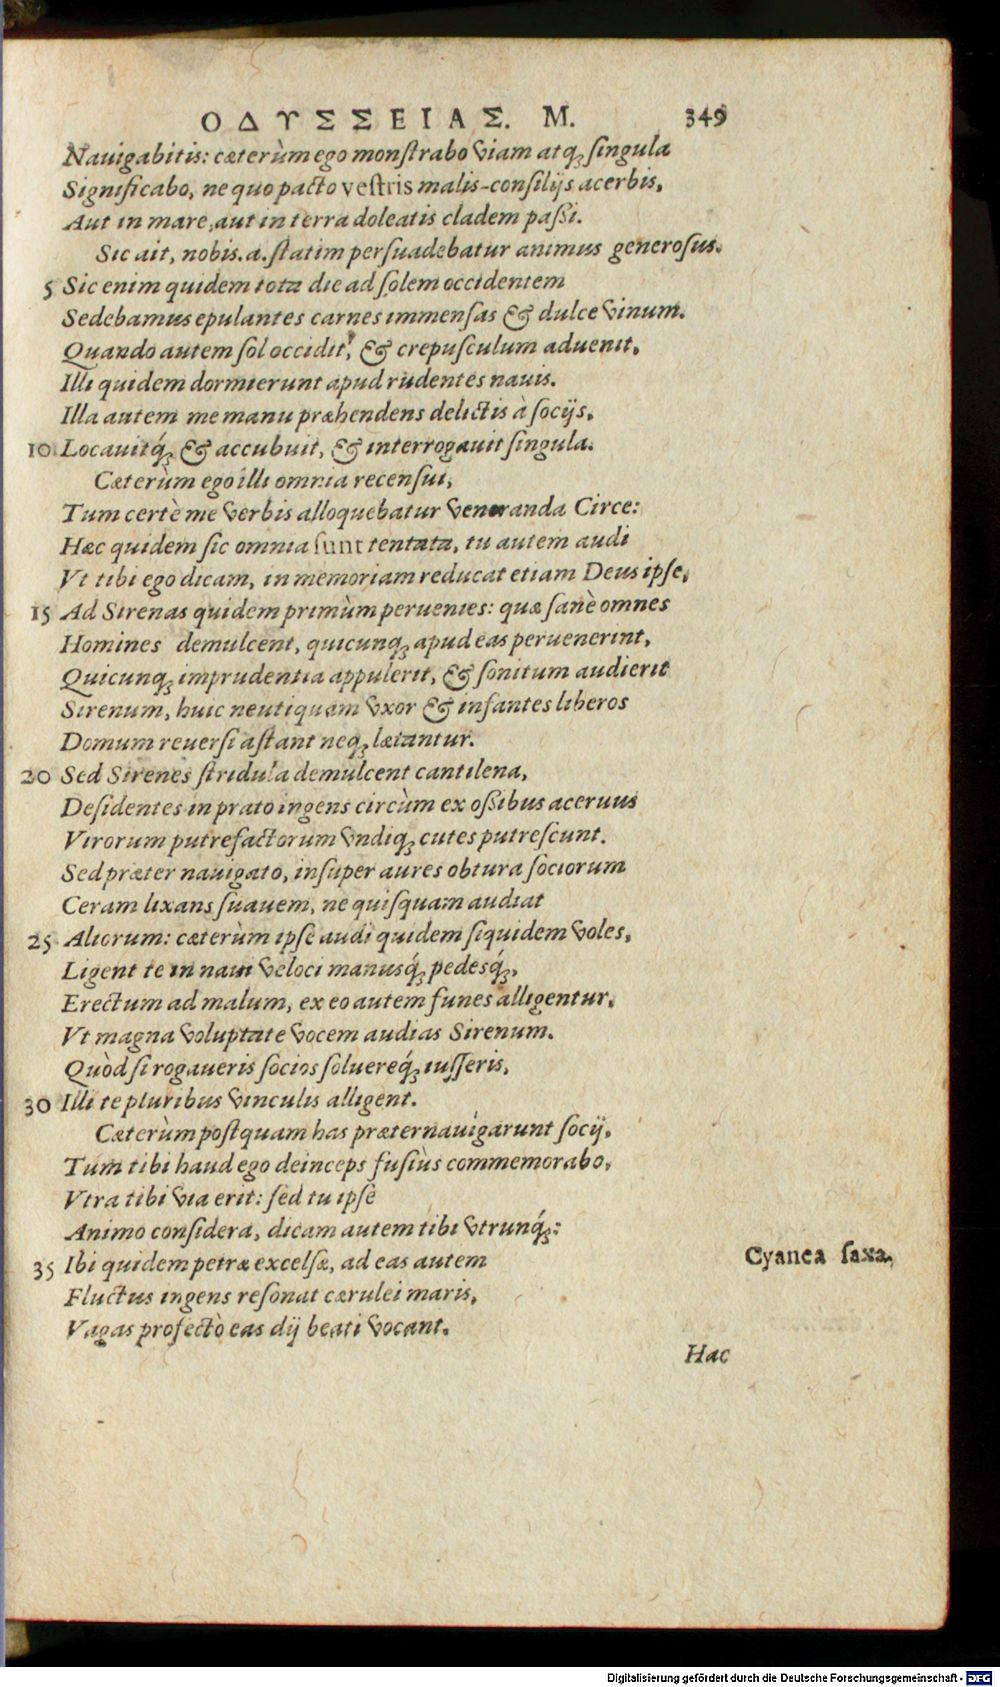 ΟΔΥΣΣΕΙΑΣ. Μ. 349
Nauigabitis: cæterùm ego monſtrabo viam atq; ſingula
Significabo, ne quo pacto veſtris malis-conſilijs acerbis,
Aut in mare, aut in terra doleatis cladem paſſi.
Sic ait, nobis.a.ſtatim perſuadebatur animus generoſus.
5 Sic enim quidem tota die ad ſolem occidentem
Sedebamus epulantes carnes immenſas & dulce vinum.
Quando autem ſol occidit, & crepuſculum aduenit,
Illi quidem dormierunt apud rudentes nauis.
Illa autem me manu præhendens delictis à ſocijs,
10 Locauitq́; & accubuit, & interrogauit ſingula.
Cæterùm ego illi omnia recenſui,
Tum certè me verbis alloquebatur veneranda Circe:
Hæc quidem ſic omnia ſunt tentata, tu autem audi
Vt tibi ego dicam, in memoriam reducat etiam Deus ipſe,
15 Ad Sirenas quidem primùm peruenies: quæ ſanè omnes
Homines demulcent, quicunq; apud eas peruenerint,
Quicunq; imprudentia appulerit, & ſonitum audierit
Sirenum, huic neutiquam vxor & infantes liberos
Domum reuerſi aſtant neq; lætantur.
20 Sed Sirenes ſtridula demulcent cantilena,
Deſidentes in prato ingens circùm ex oſſibus aceruus
Virorum putrefactorum vndiq; cutes putreſcunt.
Sed præter nauigato, inſuper aures obtura ſociorum
Ceram lixans ſuauem, ne quiſquam audiat
25 Aliorum: cæterùm ipſe audi quidem ſiquidem voles,
Ligent te in naui veloci manusq́; pedesq́;,
Erectum ad malum, ex eo autem funes alligentur,
Vt magna voluptate vocem audias Sirenum.
Quòd ſi rogaueris ſocios ſoluereq́; iuſſeris,
30 Illi te pluribus vinculis alligent.
Cæterùm poſtquam has præternauigarunt ſocij,
Tum tibi haud ego deinceps fuſiùs commemorabo,
Vtra tibi via erit: ſed tu ipſe
Animo conſidera, dicam autem tibi vtrunq́;:
35 Ibi quidem petræ excelſæ, ad eas autem
Cyanea ſaxa,
Fluctus ingens reſonat cærulei maris,
Vagas profectò eas dij beati vocant.
Hac
Digitalisierung gefördert durch die Deutsche Forschungsgemeinschaft - DFG